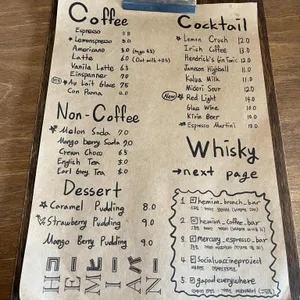 Coffee
Espresso
Lemonspresso
Americano 5.0
Latte 6.0 (Oat milk +0.5)
Vanilla Latte 6.5
Einspanner 7.0
Au Lait Glace 7.5
Con Panna
Non-Coffee
Melon Soda 7.0
Mango berry Soda 7.0
Cream Choco 6.5
English Tea 5.0
Earl Grey Tea 5.0
Dessert
Caramel Pudding 8.0
Strawberry Pudding 9.0
Mango Berry Pudding 9.0
HEMIAN
Cocktail
Lemon Crush 12.0
Irish Coffee 13.0
Hendrick's Gin Tonic 12.0
Jameson Highball 11.0
Kalua Milk 11.0
Midori Sour 12.0
New Red Light 14.0
Glass Wine 11.0
Kirin Beer 9.0
Espresso Martini 13.0
Whisky
→ next page
1 hemian_brunch_bar
2 hemian_coffee_bar
3 mercury_espresso_bar
4 socialvaccineproject
5 gapod.everywhere